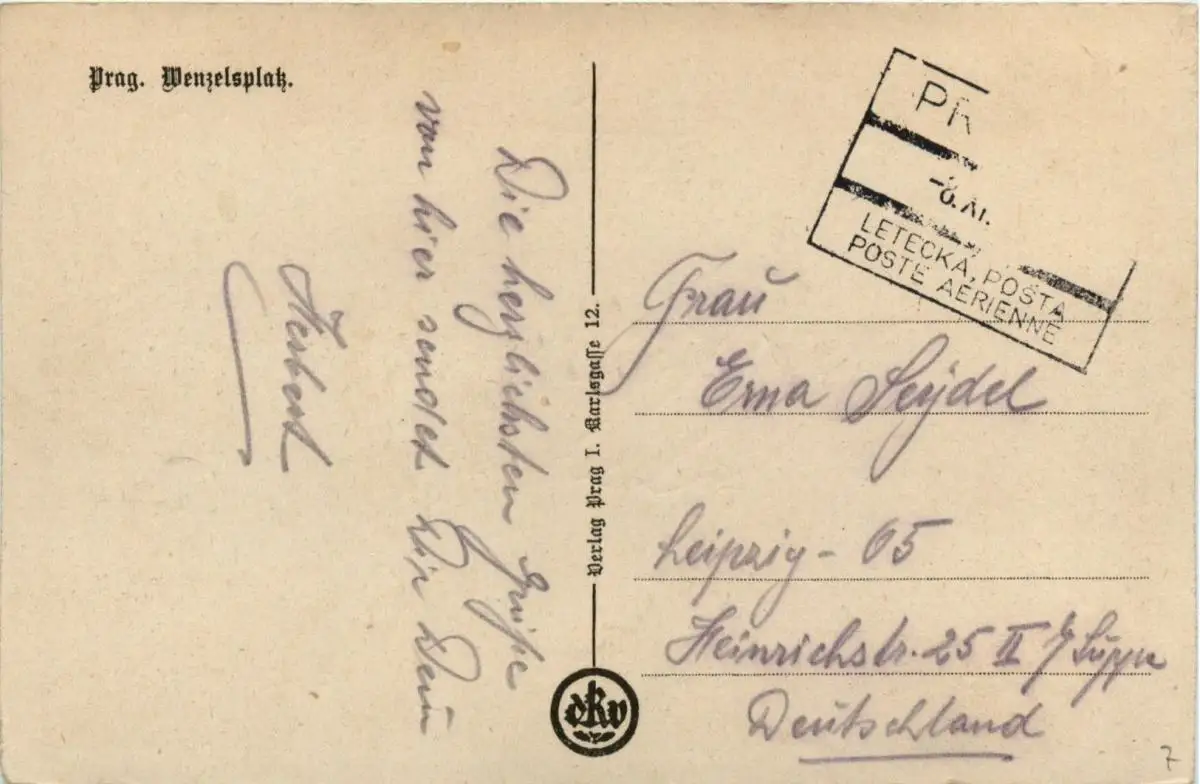 Prag. Wenzelsplatz.
Die herzlichsten Grüße
von hier sendet Dir Dein
Herbert
Verlag Prag I. Karlsgasse 12.
dkv
PR
-8.XI.
LETECKÁ POŠTA
POSTE AÉRIENNE
Frau
Erna Seydel
Leipzig - O5
Heinrichstr. 25 II
Deutschland
7